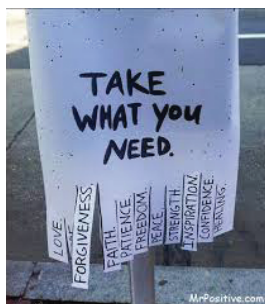 TAKE
WHAT YOU
NEED.
LOVE.
FORGIVENESS.
FAITH.
PATIENCE.
FREEDOM.
PEACE.
STRENGTH.
INSPIRATION.
CONFIDENCE.
HEALING.
MrPositive.com